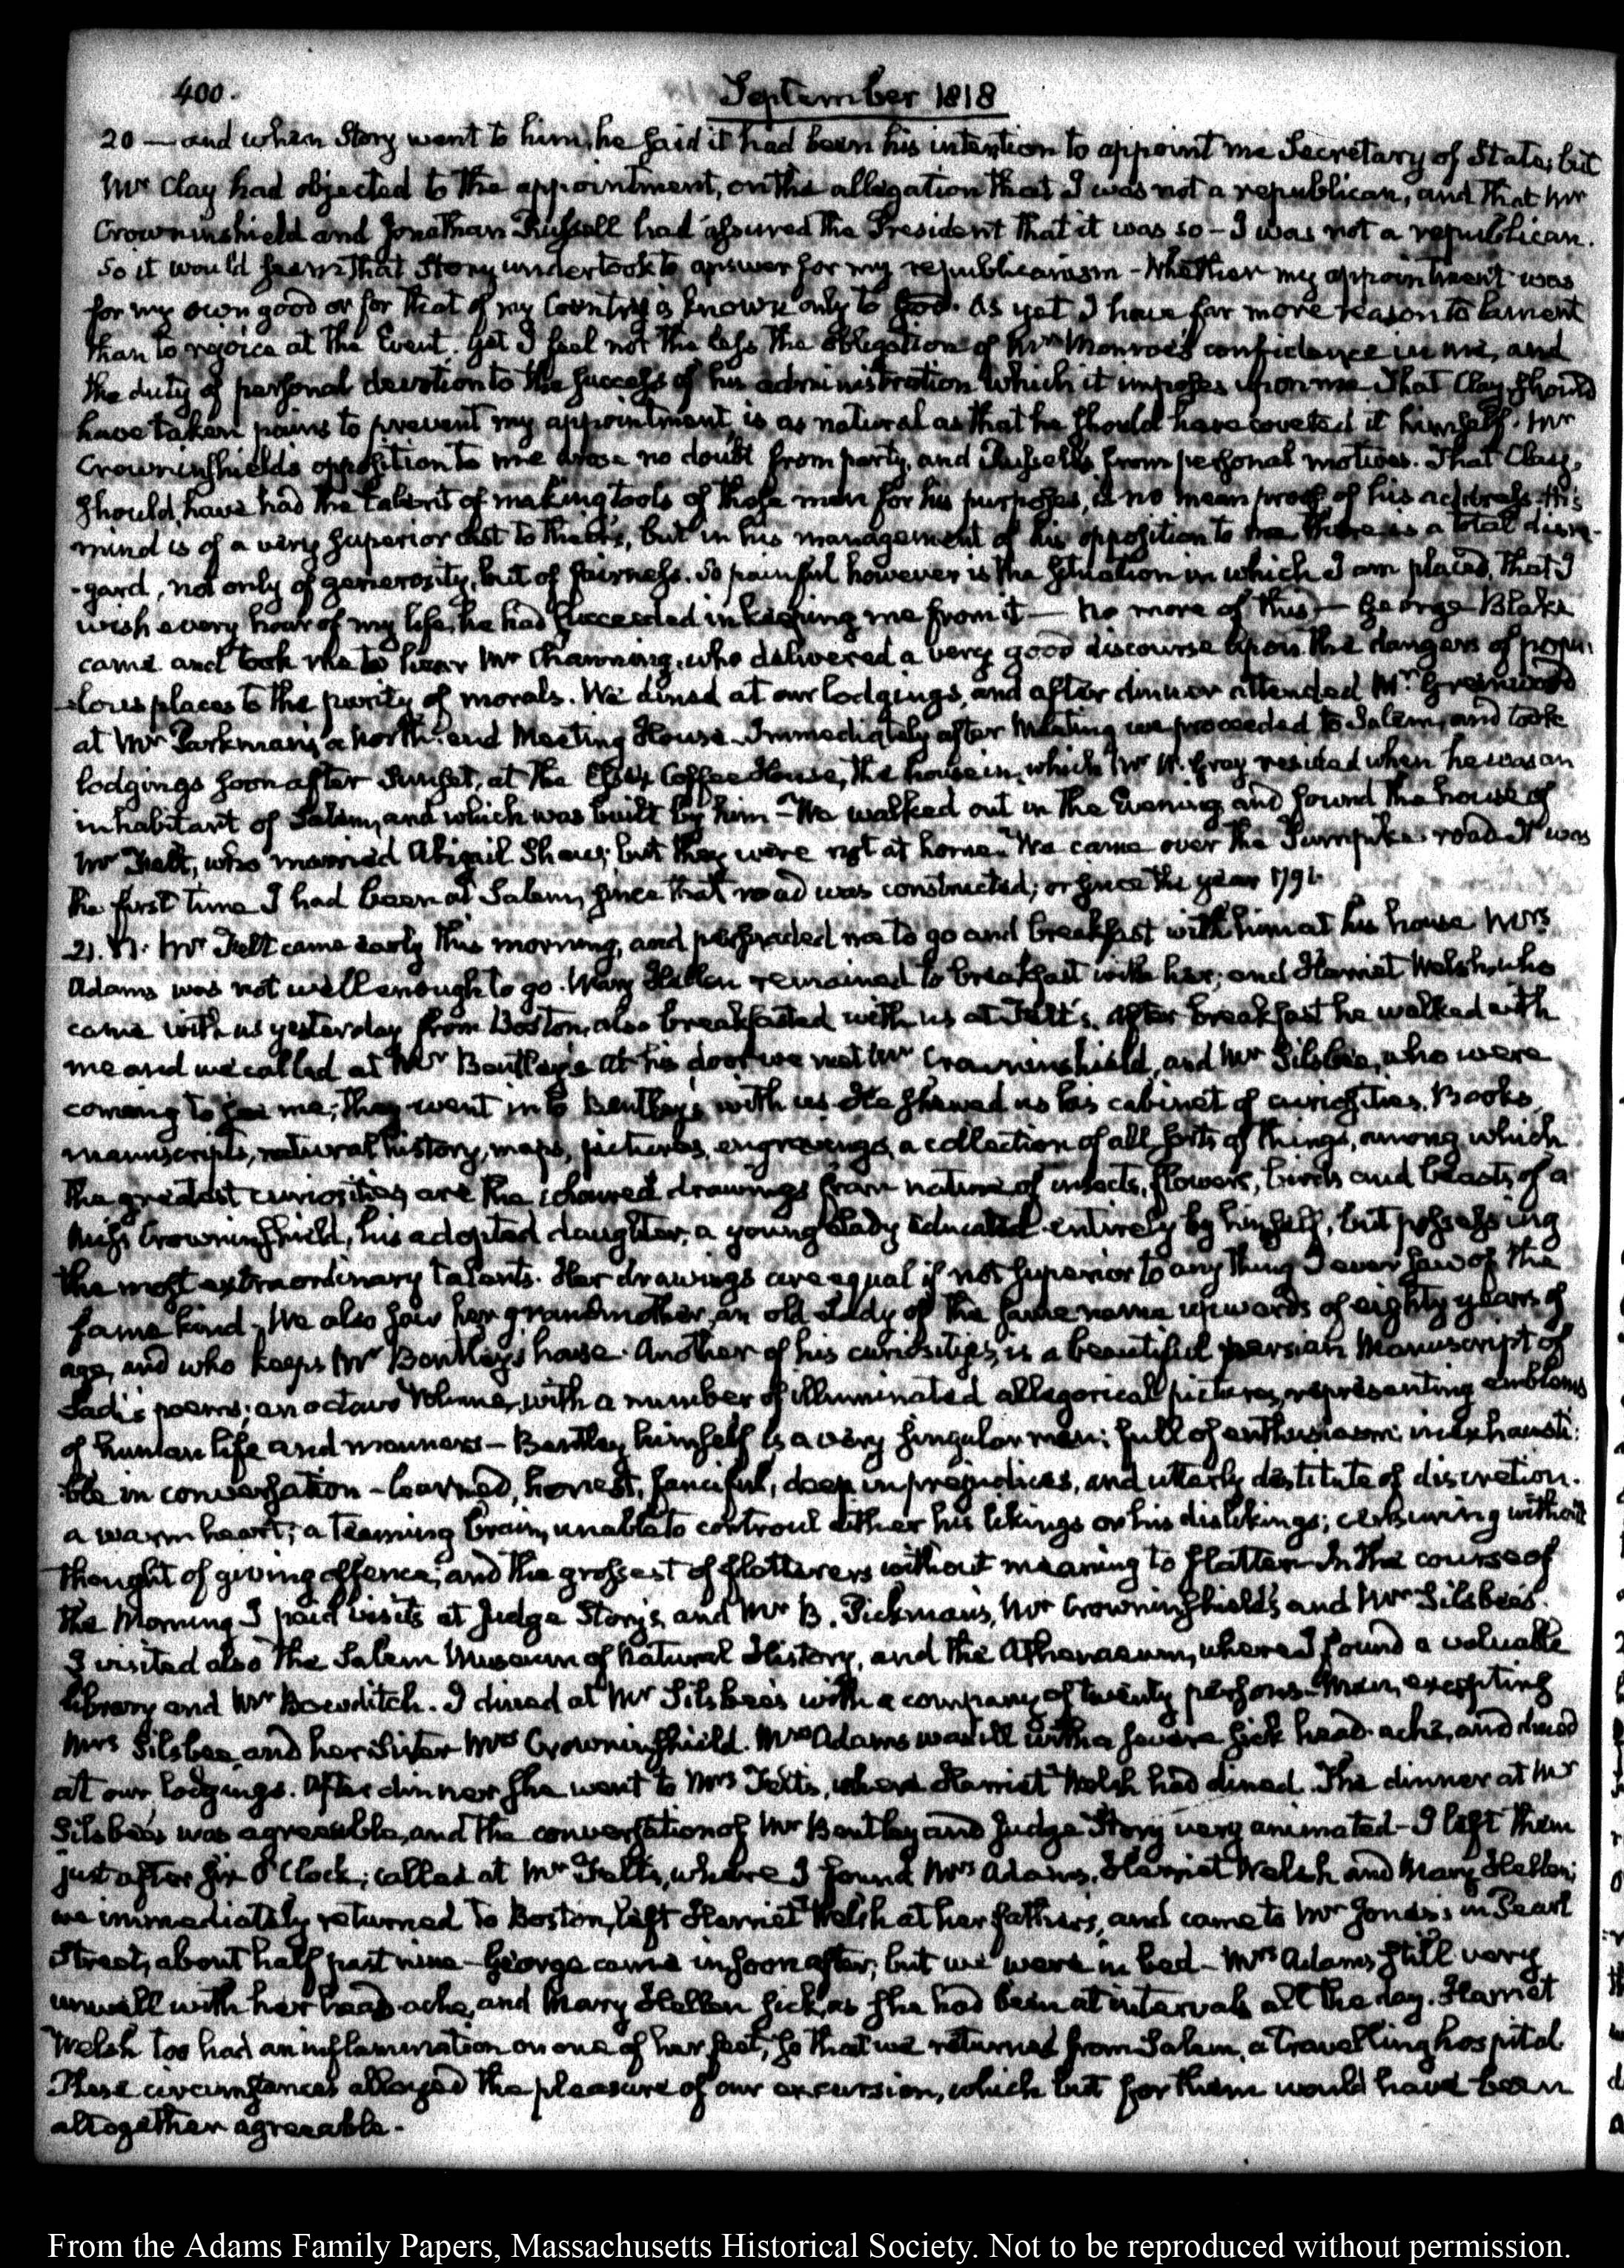 400.
September 1818
20 — and when Story went to him, he said it had been his intention to appoint me Secretary of State; but
Mr Clay had objected to the appointment, on the allegation that I was not a republican, and that Mr
Crowninshield and Jonathan Russell had assured the President that it was so - I was not a republican.
So it would seem that Story undertook to answer for my republicanism - Whether my appointment was
for my own good or for that of my Country is known only to God. As yet I have far more reason to lament
than to rejoice at the Event. Yet I feel not the less the obligation of Mr Monroe's confidence in me, and
the duty of personal devotion to the success of his administration which it imposes upon me. That Clay should
have taken pains to prevent my appointment, is as natural as that he should have coveted it himself. Mr
Crowninshield's opposition to me arose no doubt from party, and Russell's from personal motives. That Clay,
should, have had the talent of making tools of those men for his purposes, is no mean proof of his address. His
mind is of a very superior cast to theirs, but in his management of his opposition to me there is a total disre-
-gard, not only of generosity, but of fairness. So painful however is the situation in which I am placed, that I
wish every hour of my life, he had succeeded in keeping me from it — No more of this — George Blake
came and took me to hear Mr Channing, who delivered a very good discourse upon the dangers of popu-
-lous places to the purity of morals. We dined at our lodgings, and after dinner attended Mr Greenwood
at Mr Parkman's, a North-end Meeting House. Immediately after Meeting we proceeded to Salem, and took
lodgings soon after Sunset, at the Essex Coffee House, the house in which Mr W. Gray resided when he was an
inhabitant of Salem, and which was built by him - We walked out in the Evening and found the house of
Mr Felt, who married Abigail Shaw; but they were not at home. We came over the Turnpike road. It was
the first time I had been at Salem, since that road was constructed; or since the year 1791.
21. Mr Felt came early this morning, and persuaded me to go and breakfast with him at his house Mrs
Adams was not well enough to go. Mary Hellen remained to breakfast with her; and Harriet Welsh, who
came with us yesterday from Boston, also breakfasted with us at Felt's. After breakfast he walked with
me and we called at Mr Bentley's at his door we met Mr Crowninshield, and Mr Silsbee, who were
coming to see me; they went in to Bentley's with us. He shewed us his cabinet of curiosities. Books,
manuscripts, natural history, maps, pictures, engravings, a collection of all sorts of things, among which
the greatest curiosities are the coloured drawings from nature of insects, flowers, birds and beasts, of a
Miss Crowninshield, his adopted daughter, a young Lady educated entirely by himself, but possessing
the most extraordinary talents. Her drawings are equal if not superior to any thing I ever saw of the
same kind. We also saw her grandmother, an old Lady of the same name upwards of eighty years of
age, and who keeps Mr Bentley's house. Another of his curiosities, is a beautiful persian Manuscript of
Sadi's poems; an octavo Volume, with a number of illuminated allegorical pictures, representing emblems
of human life and manners - Bentley himself is a very singular man; full of enthusiasm: inexhausti-
ble in conversation - learned, honest, fanciful, deep in prejudices, and utterly destitute of discretion.
a warm heart; a teeming brain, unable to controul either his likings or his dislikings; censuring without
thought of giving offence; and the grossest of flatterers without meaning to flatter. In the course of
the Morning I paid visits at Judge Story's, and Mr B. Pickman's, Mr Crowninshield's and Mr Silsbee's.
I visited also the Salem Museum of Natural History, and the Athenaeum, where I found a valuable
library and Mr Bowditch. I dined at Mr Silsbee's with a company of twenty persons - Men, excepting
Mrs Silsbee and her Sister Mrs Crowninshield. Mrs Adams was ill with a severe sick head-ache, and dined
at our lodgings. After dinner she went to Mrs Felt's, where Harriet Welsh had dined. The dinner at Mr
Silsbee's was agreeable, and the conversation of Mr Bentley and Judge Story very animated - I left them
just after six O'Clock; called at Mr Felt's, where I found Mrs Adams, Harriet Welsh and Mary Hellen;
we immediately returned to Boston, left Harriet Welsh at her father's, and came to Mr Jones's in Pearl
Street, about half past nine - George came in soon after; but we were in bed - Mrs Adams still very
unwell with her head-ache, and Mary Hellen sick, as she had been at intervals all the day. Harriet
Welsh too had an inflammation on one of her feet, so that we returned from Salem, a travelling hospital
These circumstances alloyed the pleasure of our excursion, which but for them would have been
altogether agreeable.
From the Adams Family Papers, Massachusetts Historical Society. Not to be reproduced without permission.